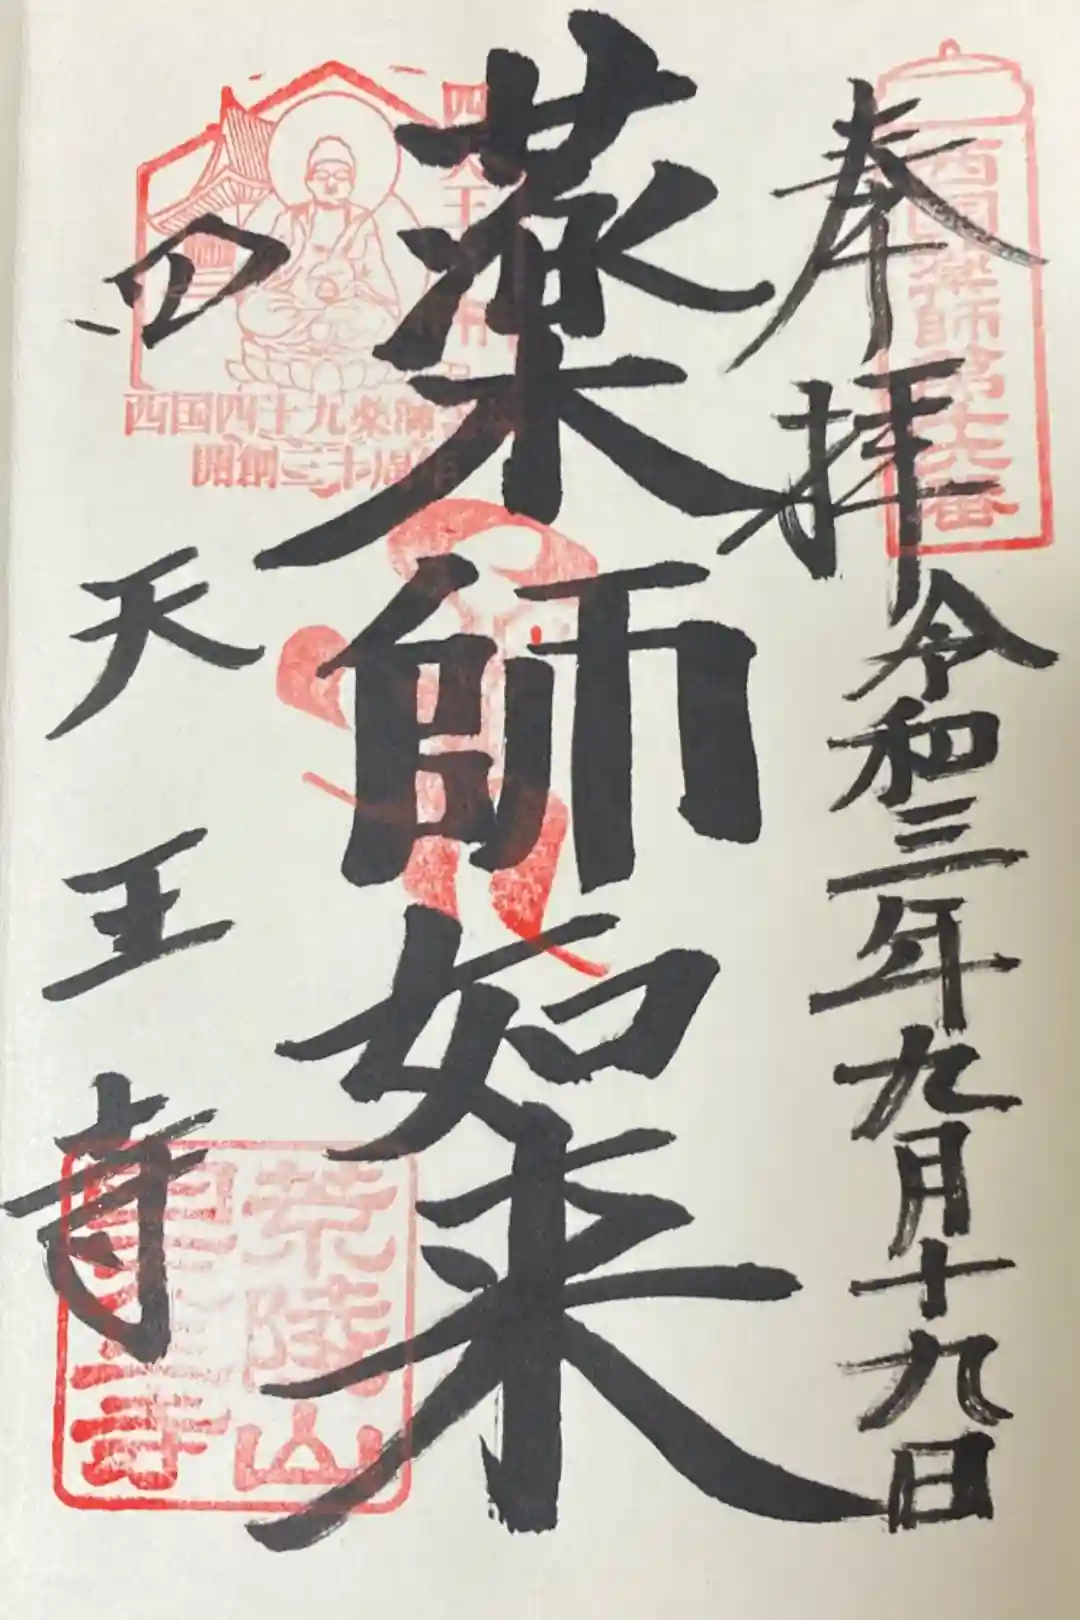 奉拝
令和三年九月十九日
西国薬師第十六番
薬師如来
四天王寺
西国四十九薬師
開創三十周年
荒陵山